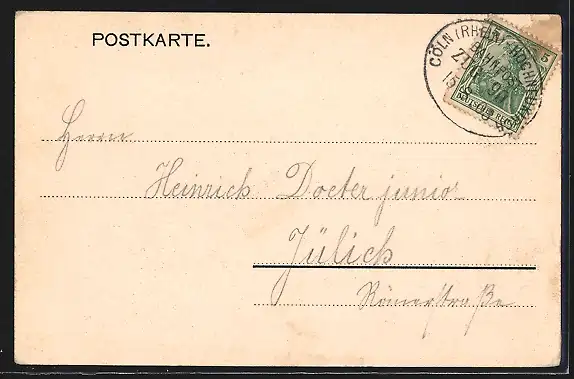 POSTKARTE.
CÖLN (RHEIN)
BAHNPOST
ZUG
5
DEUTSCHES REICH
Herrn
Heinrich Docter junior
Jülich
Römerstraße